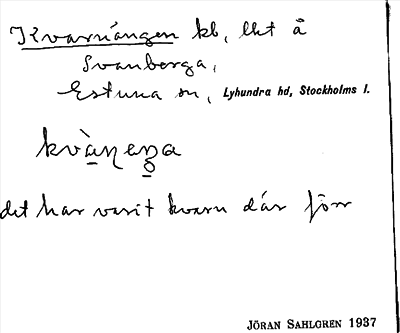 Kvarnängen kb, lht å
Svanberga,
Estuna sn, Lyhundra hd, Stockholms l.
kvànẹŋa
det har varit kvarn där förr
JÖRAN SAHLGREN 1937